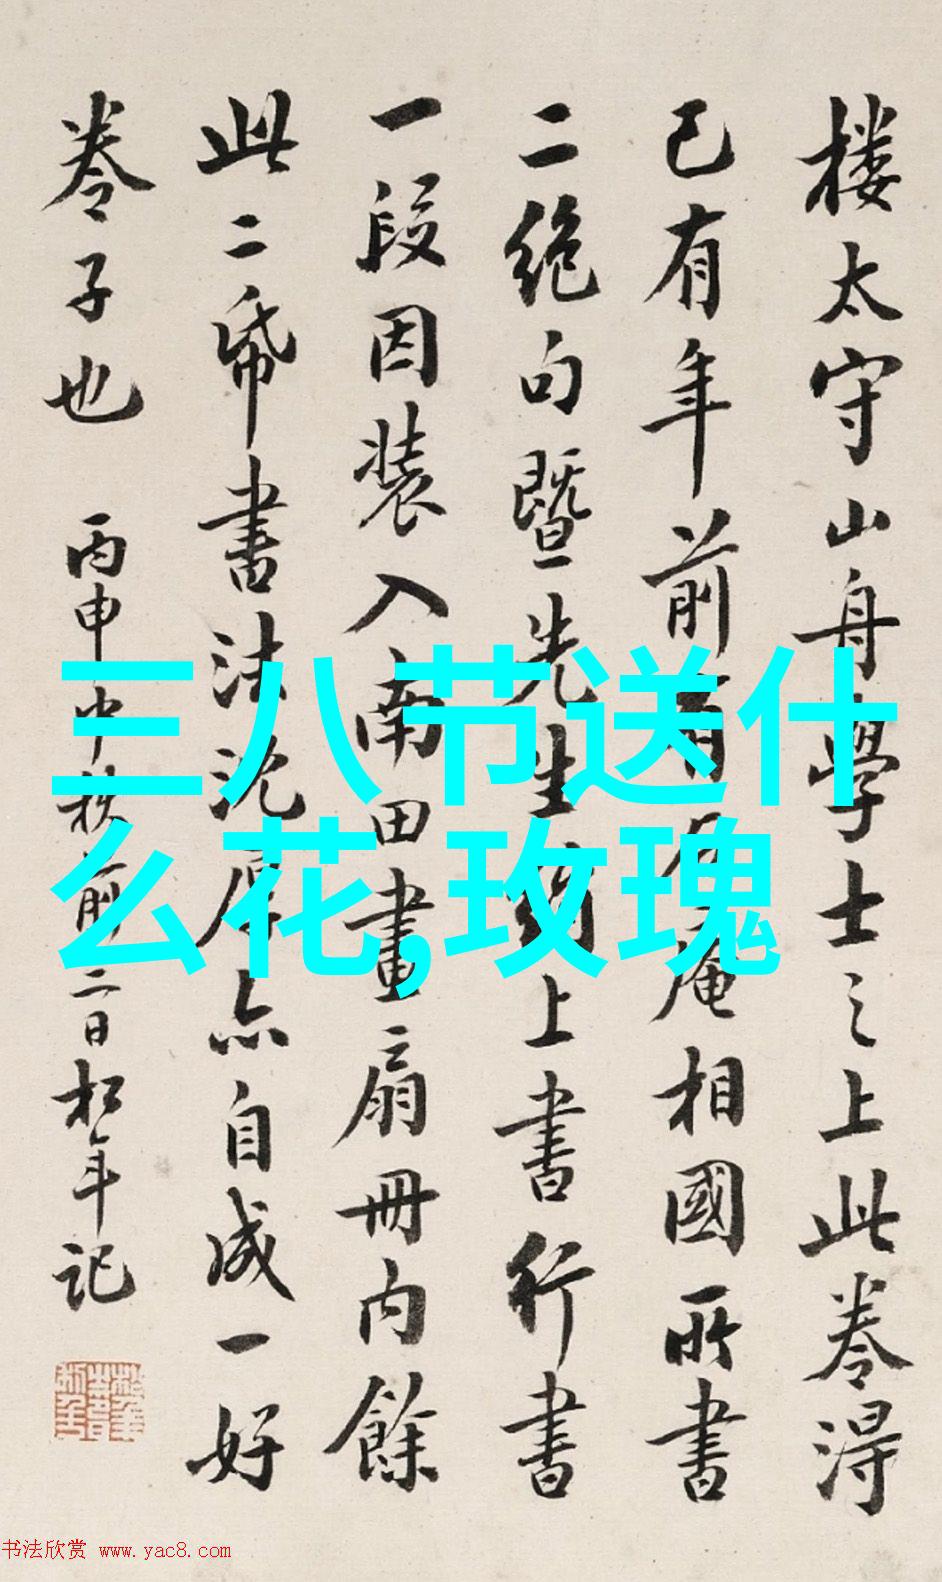 楼太守山舟學士之上此卷得
已有年前有庵相國所書
二绝句暨先生上書行書
一段因装入南田畫扇冊内餘
此二帋書法沈厚亦自成一好
卷子也 丙申中秋前二日松年记
三八节送什
么花,玫瑰
书法欣赏 www.yac8.com